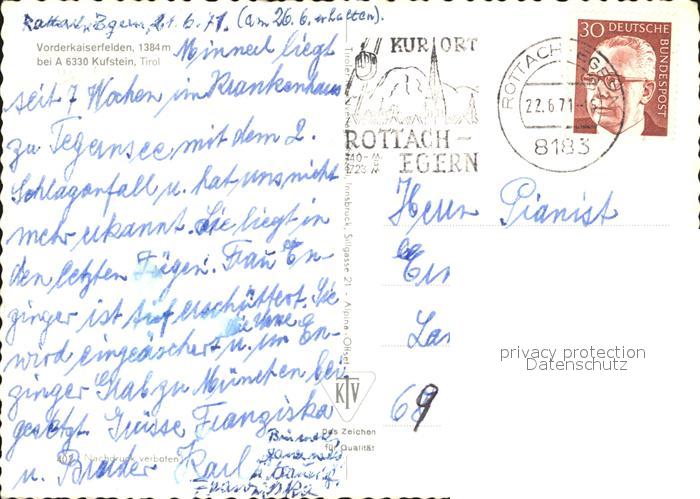 Rottach-Egern, 21.6.71. (am 26.6. erhalten).
Vorderkaiserfelden, 1384 m
bei A 6330 Kufstein, Tirol
Minnerl liegt
seit 7 Wochen im Krankenhaus
zu Tegernsee mit dem 2.
Schlaganfall u. hat uns nicht
mehr erkannt. Sie liegt in
den letzten Zügen. Frau En-
zinger ist tief erschüttert. Sie
wird eingeäschert u. im En-
zinger Grab zu München bei
gesetzt. Grüsse Franziska
u. Bruder Karl
Nachdruck verboten
Innsbruck, Sillgasse 21 - Alpina-Offset
KTV
Das Zeichen
für Qualität
KURORT
ROTTACH-
EGERN
740-
1723 m
ROTTACH-EGERN
22.6.71
8183
30 DEUTSCHE
BUNDESPOST
Herrn Pianist
La
68
9
privacy protection
Datenschutz